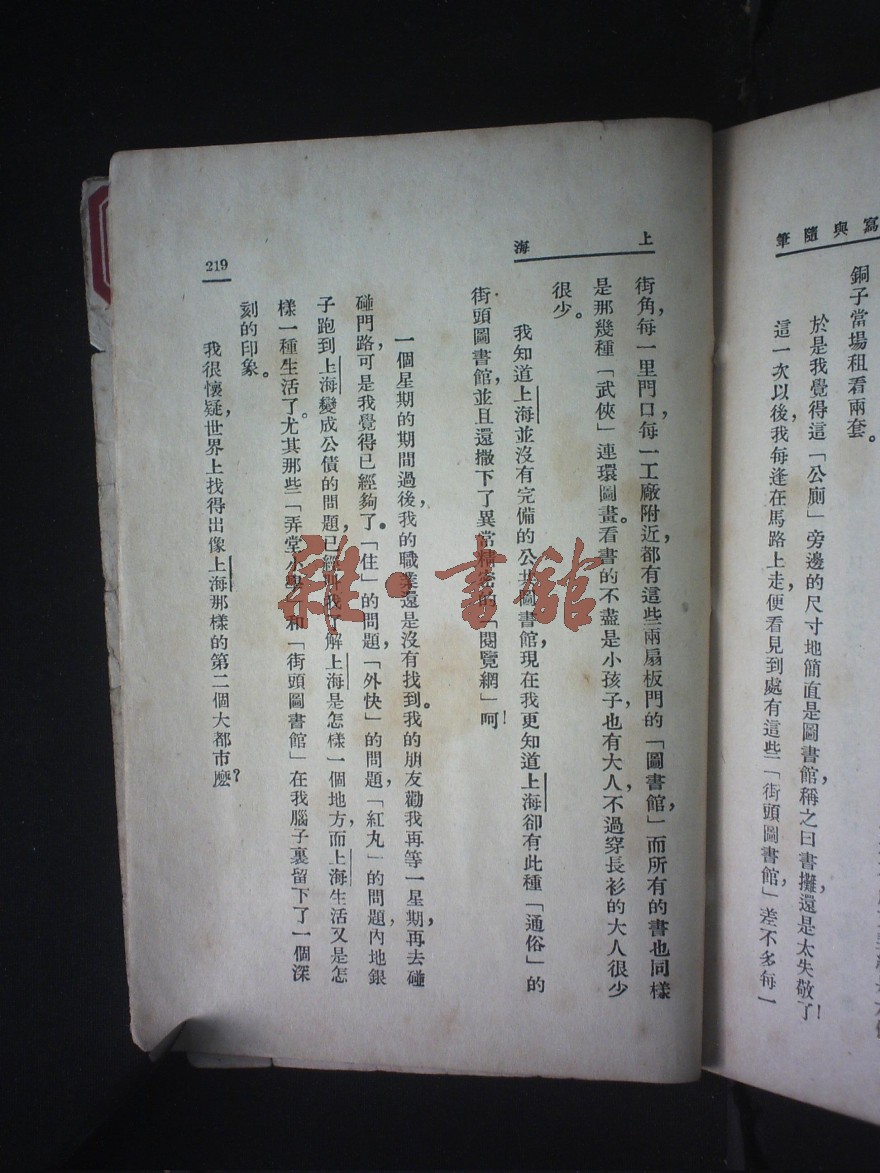 寫與隨筆
銅子當場租看兩套。
於是我覺得這「公廁」旁邊的尺寸地簡直是圖書館，稱之曰書攤，還是太失敬了！
這一次以後，我每逢在馬路上走，便看見到處有這些「街頭圖書館」，差不多每一
上海
街角，每一里門口，每一工廠附近，都有這些兩扇板門的「圖書館」，而所有的書也同樣
是那幾種「武俠」連環圖畫。看書的不盡是小孩子，也有大人，不過穿長衫的大人很少
很少。
我知道上海並沒有完備的公共圖書館，現在我更知道上海卻有此種「通俗」的
街頭圖書館，並且還撒下了異常精密的「閱覽網」呵！
一個星期的期間過後，我的職業還是沒有找到。我的朋友勸我再等一星期，再去碰
碰門路，可是我覺得已經夠了。「住」的問題，「外快」的問題，「紅丸」的問題，內地銀
子跑到上海變成公債的問題，已經叫我了解上海是怎樣一個地方，而上海生活又是怎
樣一種生活了。尤其那些「弄堂小學」和「街頭圖書館」在我腦子裏留下了一個深
刻的印象。
我很懷疑，世界上找得出像上海那樣的第二個大都市麼？
219
雜·書館